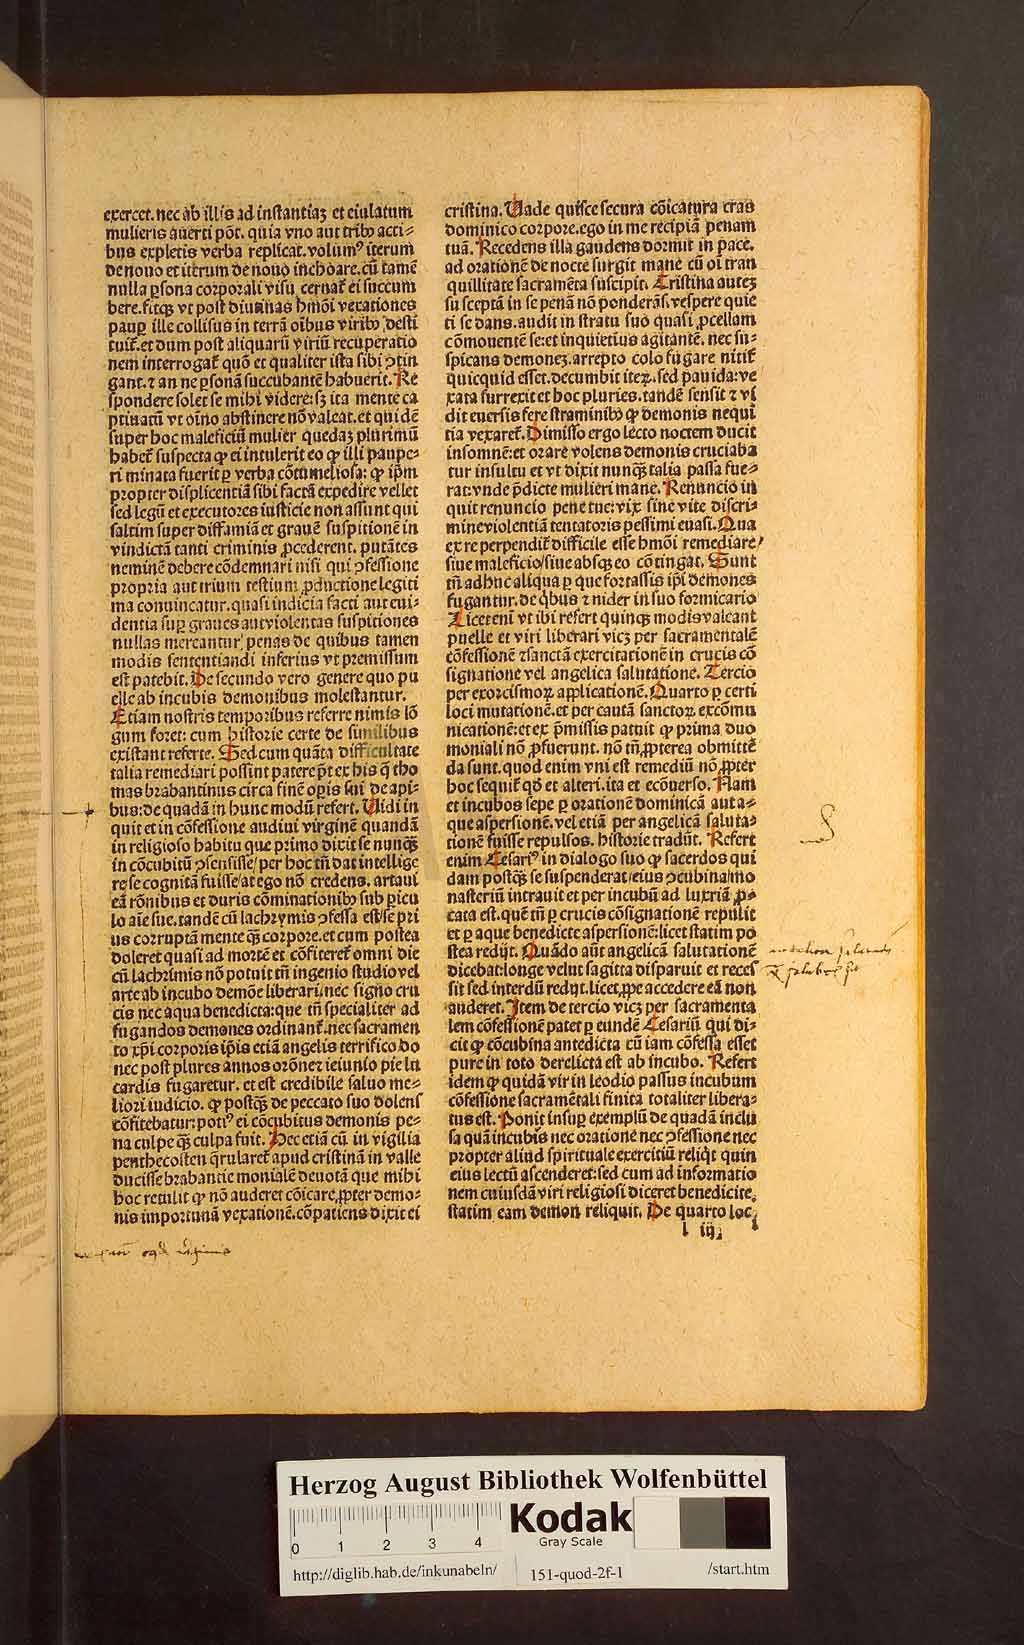 exercet. nec ab illis ad instantiaꝫ et eiulatum
mulieris auerti põt. quia vno aut tribꝰ acti⸗
bus expletis verba replicat. volumꝰ iterum
de nouo et iterum de nouo inchoare. cũ tamẽ
nulla ꝑsona corporali visu cernat᷑ ei succum
bere. fitqꝫ vt post diurnas hmõi vexationes
paupꝑ ille collisus in terrã oĩbus viribꝰ desti
tuit᷑. et dum post aliquarũ viriũ recuperatio
nem interrogat᷑ quõ et qualiter ista sibi ↄtin
gant. ⁊ an ne ꝑsonã succubantẽ habuerit. Re
spondere solet se nihil videre: sꝫ ita mente ca
ptiuatũ vt oĩno abstinere nõ valeat. et quidẽ
super hoc maleficiũ mulier quedaꝫ plurimũ
habet᷑ suspecta ꝙ ei intulerit eo ꝙ illi paupe⸗
ri minata fuerit ꝑ verba cõtumeliosa: ꝙ ip̃m
propter displicentiã sibi factã expedire vellet
sed legũ et executores iusticie non assunt qui
saltim super diffamiã et grauẽ suspitionẽ in
vindictã tanti criminis ꝓcederent. putãtes
neminẽ debere cõdemnari nisi qui ↄfessione
propria aut trium testium ꝓductione legiti
ma conuincatur. quasi indicia facti aut eui⸗
dentia suꝑ graues aut violentas suspitiones
nullas mercantur penas de quibus tamen
modis sententiandi inferius vt premissum
est patebit. De secundo vero genere quo pu
elle ab incubis demonibus molestantur.
Etiam nostris temporibus referre nimis lõ
gum foret: cum historie certe de similibus
existant referte. Sed cum quãta difficultate
talia remediari possint patere põt ex his q̃ tho
mas brabantinus circa finẽ opis sui de api⸗
bus: de quadã in hunc modũ refert. Uidi in
quit et in cõfessione audiui virginẽ quandã
in religioso habitu que primo dixit se nunqꝫ
in cõcubitũ ↄsensisse/ per hoc tñ dat intellige
re se cognitã fuisse/ at ego nõ credens. artaui
eã rõnibus et duris cõminationibꝰ sub ꝑicu
lo aĩe sue. tandẽ cũ lachrymis ↄfessa est/ se pri
us corruptã mente qꝫ corpore. et cum postea
doleret quasi ad mortẽ et cõfiteret᷑ omni die
cũ lachrimis nõ potuit tñ ingenio studio vel
arte ab incubo demõe liberari. nec signo cru
cis nec aqua benedicta: que tñ specialiter ad
fugandos demones ordinant᷑. nec sacramen
to xp̃i corporis ip̃is etiã angelis terrifico do
nec post plures annos orõne ⁊ ieiunio pie lu
cardis fugaretur. et est credibile saluo me⸗
liori iudicio. ꝙ postqꝫ de peccato suo dolens
cõfitebatur: potiꝰ ei cõcubitus demonis pe⸗
na culpe qꝫ culpa fuit. Hec etiã cũ in vigilia
penthecosten q̃rularet᷑ apud cristinã in valle
ducisse brabantie monialẽ deuotã que mihi
hoc retulit ꝙ nõ auderet cõicare, ꝓpter demo⸗
nis importunã vexationẽ. cõpatiens dixit ei
cristina. Uade quiesce secura cõicatura cras
dominico corpore. ego in me recipiã penam
tuã. Recedens illa gaudens dormit in pace.
ad orationẽ de nocte surgit mane cũ oĩ tran
quillitate sacramẽta suscipit. Cristina auteꝫ
susceptã in se penã nõ ponderãs. vespere quie
ti se dans. audit in stratu suo quasi ꝓcellam
cõmouentẽ se: et inquietius agitantẽ. nec su⸗
spicans demoneꝫ. arrepto colo fugare nitit᷑
quicquid esset. decumbit iteꝝ. sed pauida: ve
xata surrexit et hoc pluries. tandẽ sensit ⁊ vi
dit euersis fere straminibꝰ ꝙ demonis nequi
tia vexaret᷑. Dimisso ergo lecto noctem ducit
insomnẽ: et orare volens demonis cruciaba
tur insultu et vt dixit nunqꝫ talia passa fue⸗
rat: vnde p̃dicte mulieri mane. Renuncio in
quit renuncio pene tue: vix sine vite discri⸗
mine violentiã tentatoris pessimi euasi. Qua
ex re perpendit᷑ difficile esse hmõi remediare/
siue maleficio/ siue absqꝫ eo cõtingat. Sunt
tñ adhuc aliqua ꝑ que fortassis ip̃i demones
fugantur. de q̃bus ⁊ nider in suo formicario
Licet enĩ vt ibi refert quinqꝫ modis valeant
puelle et viri liberari viꝫ per sacramentalẽ
cõfessionẽ ⁊ sanctã exercitationẽ in crucis cõ
signatione vel angelica salutatione. Tercio
per exorcismoꝝ applicationẽ. Quarto ꝑ certi
loci mutationẽ. et per cautã sanctoꝝ excõmu
nicationẽ: et ex p̃missis patuit ꝙ prima duo
moniali nõ ꝓfuerunt. nõ tñ ꝓpterea obmittẽ
da sunt. quod enim vni est remediũ nõ ꝓpter
hoc sequit᷑ qd̃ et alteri. ita et ecõuerso. Nam
et incubos sepe ꝑ orationẽ dominicã aut a⸗
que aspersionẽ. vel etiã per angelicã saluta⸗
tionẽ fuisse repulsos. historie tradũt. Refert
enim Cesariꝰ in dialogo suo ꝙ sacerdos qui
dam postqꝫ se suspenderat/ eius ↄcubina mo
nasteriũ intrauit et per incubũ ad luxriã ꝓ⸗
cata est. quẽ tñ ꝑ crucis cõsignationẽ repulit
et ꝑ aque benedicte aspersionẽ: licet statim po
stea redijt. Quãdo aũt angelicã salutationẽ
dicebat: longe velut sagitta disparuit et reces
sit sed interdũ redijt. licet, ꝓpe accedere eã non
auderet. Item de tercio viꝫ per sacramenta
lem cõfessionẽ patet ꝑ eundẽ Cesariũ qui di⸗
cit ꝙ cõcubina antedicta cũ iam cõfessa esset
pure in toto derelicta est ab incubo. Refert
idem ꝙ quidã vir in leodio passus incubum
cõfessione sacramẽtali finita totaliter libera⸗
tus est. Ponit insuꝑ exemplũ de quadã inclu
sa quã incubis nec oratione nec ↄfessione nec
propter aliud spirituale exercitiũ reliq̃t quin
eius lectũ ascenderet: sed cum ad informatio
nem cuiusdã viri religiosi diceret benedicite.
statim eam demon reliquit. De quarto loci
l iij
Herzog August Bibliothek Wolfenbüttel
0 1 2 3 4
Kodak
Gray Scale
http://diglib.hab.de/inkunabeln/
151-quod-2f-1
/start.htm